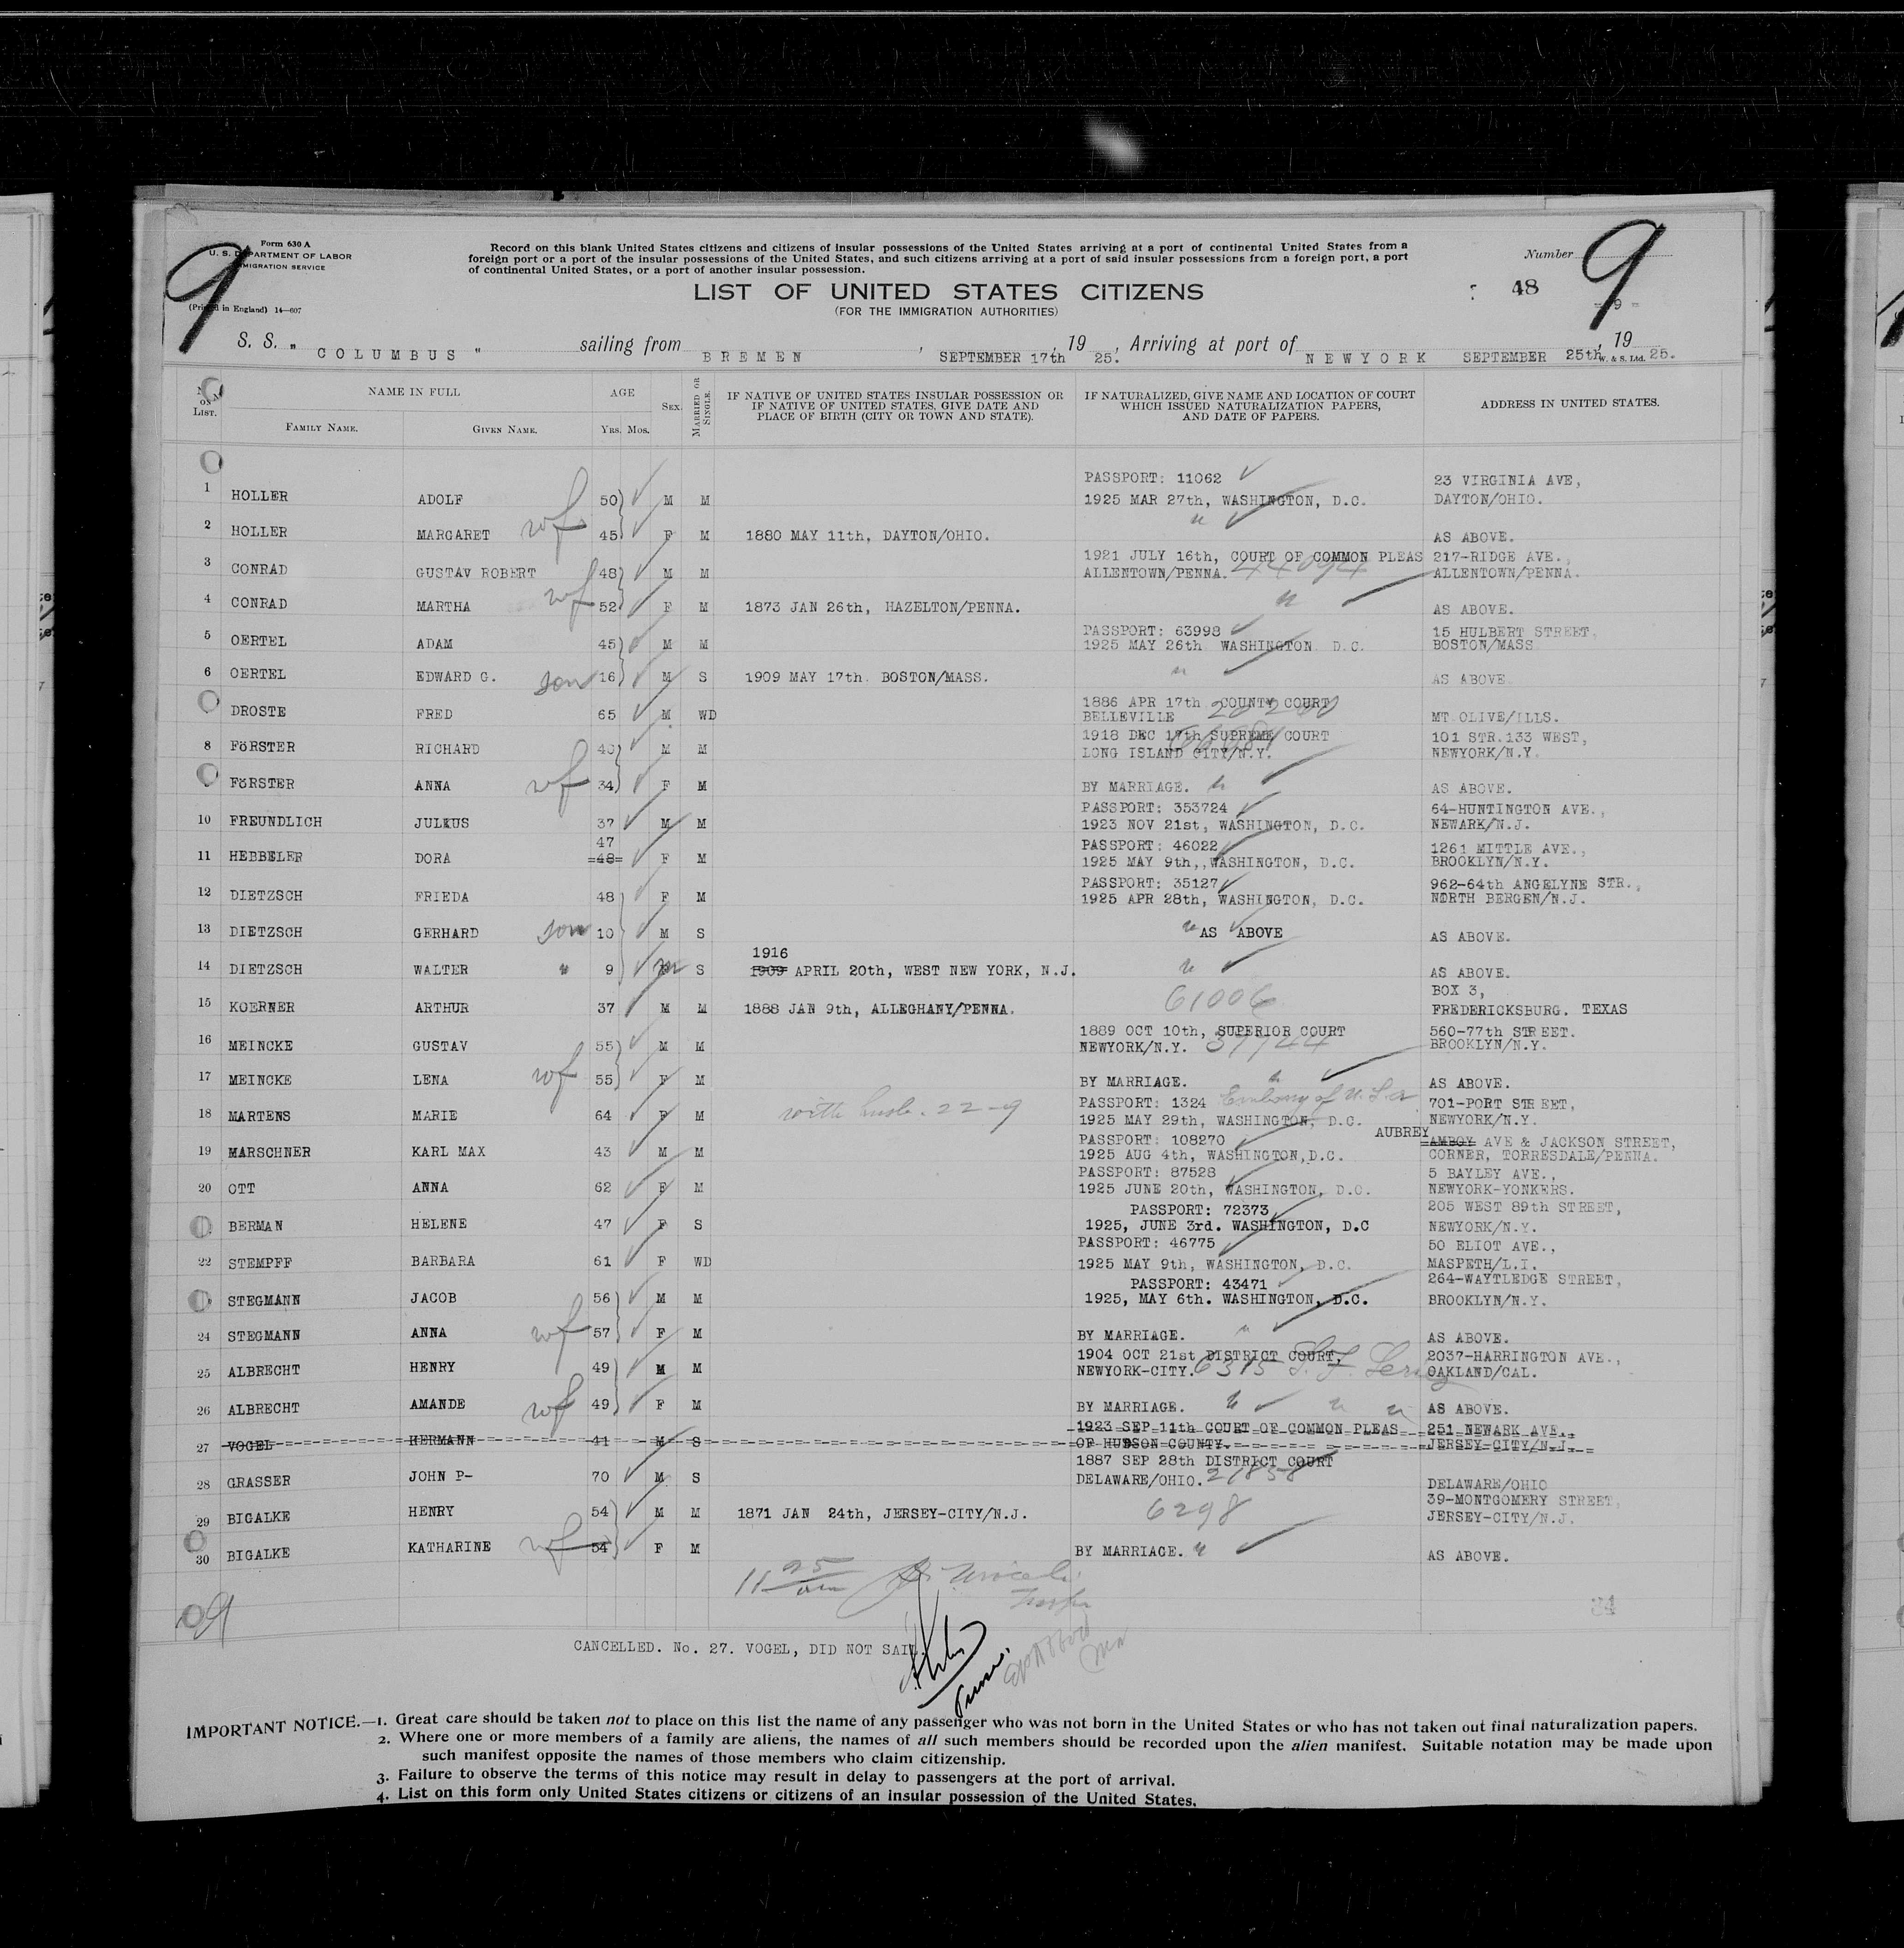 9
Form 630 A
U. S. DEPARTMENT OF LABOR
IMMIGRATION SERVICE
(Printed in England) 14—607
Record on this blank United States citizens and citizens of insular possessions of the United States arriving at a port of continental United States from a
foreign port or a port of the insular possessions of the United States, and such citizens arriving at a port of said insular possessions from a foreign port, a port
of continental United States, or a port of another insular possession.
Number 9
48
= 9 =
LIST OF UNITED STATES CITIZENS
(FOR THE IMMIGRATION AUTHORITIES)
S. S. " COLUMBUS " sailing from BREMEN, SEPTEMBER 17th 19 25. , Arriving at port of NEWYORK SEPTEMBER 25th , 19 25.
W. & S. Ltd.
No. ON LIST. NAME IN FULL AGE SEX. MARRIED OR SINGLE. IF NATIVE OF UNITED STATES INSULAR POSSESSION OR IF NATIVE OF UNITED STATES, GIVE DATE AND PLACE OF BIRTH (CITY OR TOWN AND STATE). IF NATURALIZED, GIVE NAME AND LOCATION OF COURT WHICH ISSUED NATURALIZATION PAPERS, AND DATE OF PAPERS. ADDRESS IN UNITED STATES.
FAMILY NAME. GIVEN NAME. YRS. MOS.
PASSPORT: 11062 23 VIRGINIA AVE,
1 HOLLER ADOLF 50 M M 1925 MAR 27th, WASHINGTON, D.C. DAYTON/OHIO.
2 HOLLER MARGARET wf 45 F M 1880 MAY 11th, DAYTON/OHIO. " AS ABOVE.
1921 JULY 16th, COURT OF COMMON PLEAS 217-RIDGE AVE.,
3 CONRAD GUSTAV ROBERT 48 M M ALLENTOWN/PENNA. 44094 ALLENTOWN/PENNA.
4 CONRAD MARTHA wf 52 F M 1873 JAN 26th, HAZELTON/PENNA. " AS ABOVE.
PASSPORT: 63998 15 HULBERT STREET,
5 OERTEL ADAM 45 M M 1925 MAY 26th WASHINGTON D.C. BOSTON/MASS
6 OERTEL EDWARD G. son 16 M S 1909 MAY 17th. BOSTON/MASS. " AS ABOVE.
1886 APR 17th COUNTY COURT
DROSTE FRED 65 M WD BELLEVILLE MT OLIVE/ILLS.
1918 DEC 17th SUPREME COURT 101 STR.133 WEST,
8 FöRSTER RICHARD 40 M M LONG ISLAND CITY/N.Y. NEWYORK/N.Y.
FöRSTER ANNA wf 34 F M BY MARRIAGE. " AS ABOVE.
PASSPORT: 353724 64-HUNTINGTON AVE.,
10 FREUNDLICH JULIUS 37 M M 1923 NOV 21st, WASHINGTON, D.C. NEWARK/N.J.
47 PASSPORT: 46022 1261 MITTLE AVE.,
11 HEBBELER DORA =48= F M 1925 MAY 9th,,WASHINGTON, D.C. BROOKLYN/N.Y.
PASSPORT: 35127 962-64th ANGELYNE STR.,
12 DIETZSCH FRIEDA 48 F M 1925 APR 28th, WASHINGTON, D.C. NORTH BERGEN/N.J.
13 DIETZSCH GERHARD son 10 M S " AS ABOVE AS ABOVE.
1916
14 DIETZSCH WALTER " 9 m S 1909 APRIL 20th, WEST NEW YORK, N.J. " AS ABOVE.
BOX 3,
15 KOERNER ARTHUR 37 M M 1888 JAN 9th, ALLEGHANY/PENNA. 61006 FREDERICKSBURG. TEXAS
1889 OCT 10th, SUPERIOR COURT 560-77th STREET.
16 MEINCKE GUSTAV 55 M M NEWYORK/N.Y. 37744 BROOKLYN/N.Y.
17 MEINCKE LENA wf 55 F M BY MARRIAGE. " AS ABOVE.
PASSPORT: 1324 Embassy of U.S.A 701-PORT STREET,
18 MARTENS MARIE 64 F M with husb. 22-9 1925 MAY 29th, WASHINGTON, D.C. NEWYORK/N.Y.
PASSPORT: 108270 AUBREY =AMBOY AVE & JACKSON STREET,
19 MARSCHNER KARL MAX 43 M M 1925 AUG 4th, WASHINGTON,D.C. CORNER, TORRESDALE/PENNA.
PASSPORT: 87528 5 BAYLEY AVE.,
20 OTT ANNA 62 F M 1925 JUNE 20th, WASHINGTON, D.C. NEWYORK-YONKERS.
PASSPORT: 72373 205 WEST 89th STREET,
BERMAN HELENE 47 F S 1925, JUNE 3rd. WASHINGTON, D.C NEWYORK/N.Y.
PASSPORT: 46775 50 ELIOT AVE.,
22 STEMPFF BARBARA 61 F WD 1925 MAY 9th, WASHINGTON, D.C. MASPETH/L.I.
PASSPORT: 43471 264-WAYTLEDGE STREET,
STEGMANN JACOB 56 M M 1925, MAY 6th. WASHINGTON, D.C. BROOKLYN/N.Y.
24 STEGMANN ANNA wf 57 F M BY MARRIAGE. " AS ABOVE.
1904 OCT 21st DISTRICT COURT, 2037-HARRINGTON AVE.,
25 ALBRECHT HENRY 49 M M NEWYORK-CITY. 6315 OAKLAND/CAL.
26 ALBRECHT AMANDE wf 49 F M BY MARRIAGE. " " " AS ABOVE.
1923 SEP 11th COURT OF COMMON PLEAS 251 NEWARK AVE.,
27 VOGEL HERMANN 41 M S OF HUDSON COUNTY. JERSEY-CITY/N.J.
1887 SEP 28th DISTRICT COURT
28 GRASSER JOHN P- 70 M S DELAWARE/OHIO. 21858 DELAWARE/OHIO
39-MONTGOMERY STREET,
29 BIGALKE HENRY 54 M M 1871 JAN 24th, JERSEY-CITY/N.J. 6298 JERSEY-CITY/N.J.
30 BIGALKE KATHARINE wf 54 F M BY MARRIAGE. " AS ABOVE.
11 25 am
9
34
CANCELLED. No. 27. VOGEL, DID NOT SAIL.
IMPORTANT NOTICE.—1. Great care should be taken not to place on this list the name of any passenger who was not born in the United States or who has not taken out final naturalization papers.
2. Where one or more members of a family are aliens, the names of all such members should be recorded upon the alien manifest. Suitable notation may be made upon
such manifest opposite the names of those members who claim citizenship.
3. Failure to observe the terms of this notice may result in delay to passengers at the port of arrival.
4. List on this form only United States citizens or citizens of an insular possession of the United States.